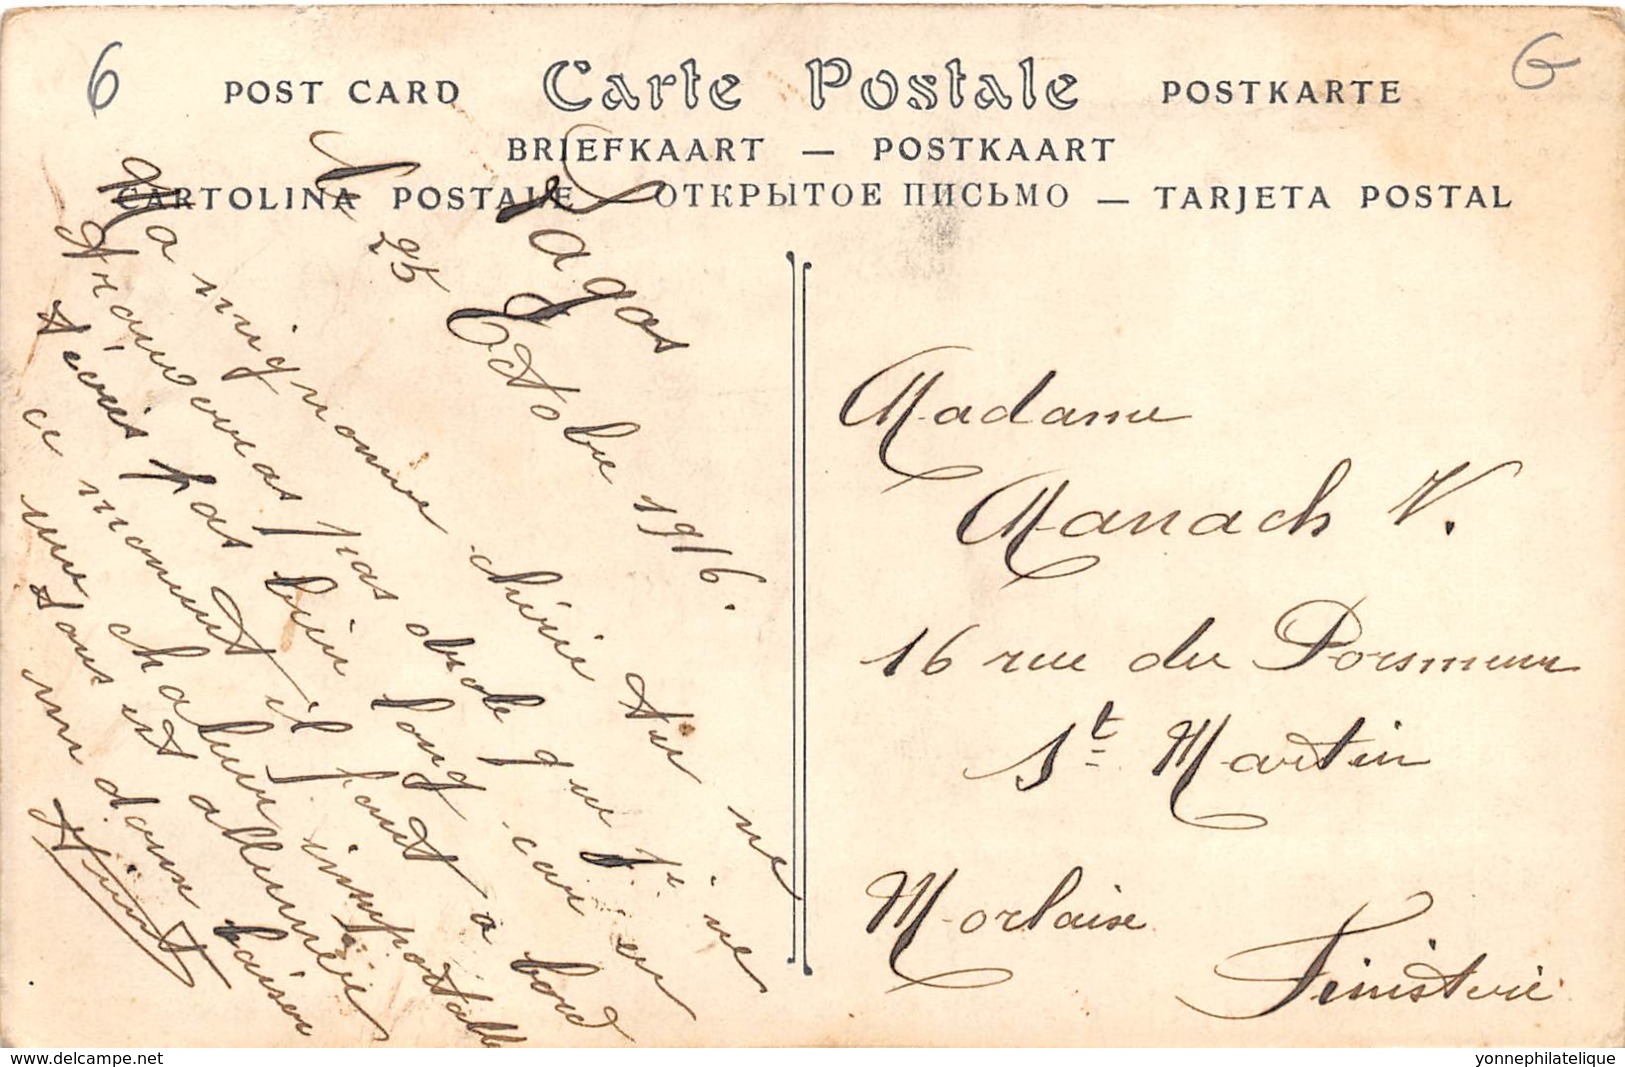 6
G
POST CARD Carte Postale POSTKARTE
BRIEFKAART — POSTKAART
CARTOLINA POSTALE — ОТКРЫТОЕ ПИСЬМО — TARJETA POSTAL
Lagos
Le 25 Octobre 1916.
Ma mignonne chérie tu ne
trouveras pas drole que je ne
t'écris pas bien long car en
ce moment il fait à bord
une chaleur insuportable
sans est allumée
un doux baiser
Madame
Manach V.
16 rue du Poismeur
St Martin
Morlaise
Finistère
www.delcampe.net
yonnephilatelique